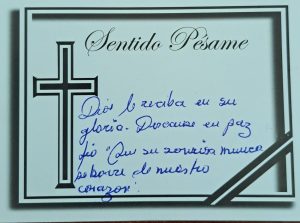 Sentido Pésame
Dios lo reciba en su
gloria. Descanse en paz
tío "Que su sonrisa nunca
se borre de nuestro
corazón".